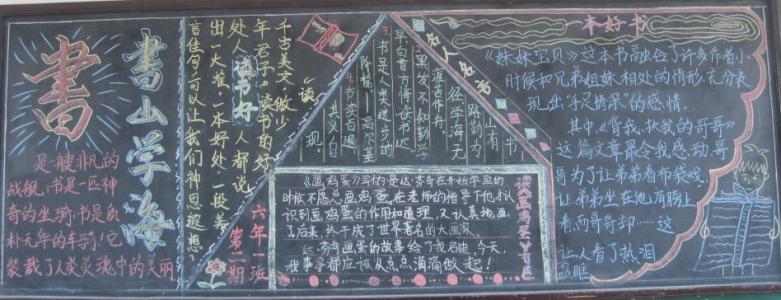 書
書山学海
是一艘非凡的
战舰,书是一匹神
奇的坐骑,书是质
朴无华的车骑!它
装载了人类灵魂中的美丽
千古美文,做少
年君子,读书的好
处人人都说
读书好
出一大堆。一本好书,一段美
言佳句可以让我们神思遐想!
六年一班
第二期
名人名言
书山有
路勤为
径学海无
涯苦作舟。
黑发不知勤学
早白首方悔读书迟
3.书是人类进步的
阶梯——高尔基
4.书读百遍
其义自
现
《画鸡蛋》
时候不愿意画鸡蛋,在老师的指导下他认
识到画鸡蛋的作用和道理,又认真地画
了后来,终于成了世界著名的大画家。
奇画蛋的故事给了我启迪,今天
我事事都应该从点点滴滴做起!
读《画鸡蛋》有感
一本好书
《妹妹宝贝》这本书融合了许多作者小
时候和兄弟姐妹相处的情形,充分表
现出“手足情深”的感情。
其中,《背我、扶我的哥哥》
这篇文章最令我感动,哥
哥为了让弟弟看布袋戏,
让弟弟坐在他肩膀上
看,而哥哥却……这
让人看了热泪
盈眶